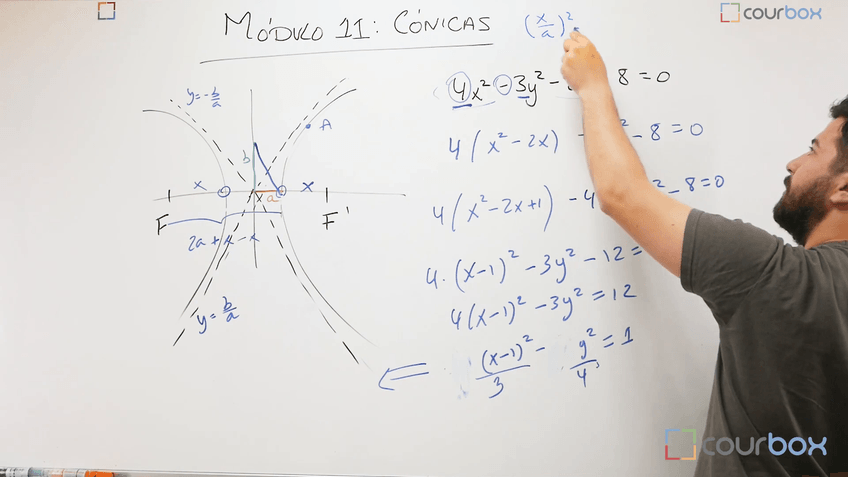 courbox
MÓDULO 11: CÓNICAS
(x/a)²
4x² - 3y² - 8 = 0
4(x² - 2x) ² - 8 = 0
4(x² - 2x + 1) - 4 ² - 8 = 0
4·(x-1)² - 3y² - 12 =
4(x-1)² - 3y² = 12
(x-1)²/3 - y²/4 = 1
y = -b/a
A
b
x x
x a
F F'
2a + x - x
y = b/a
courbox